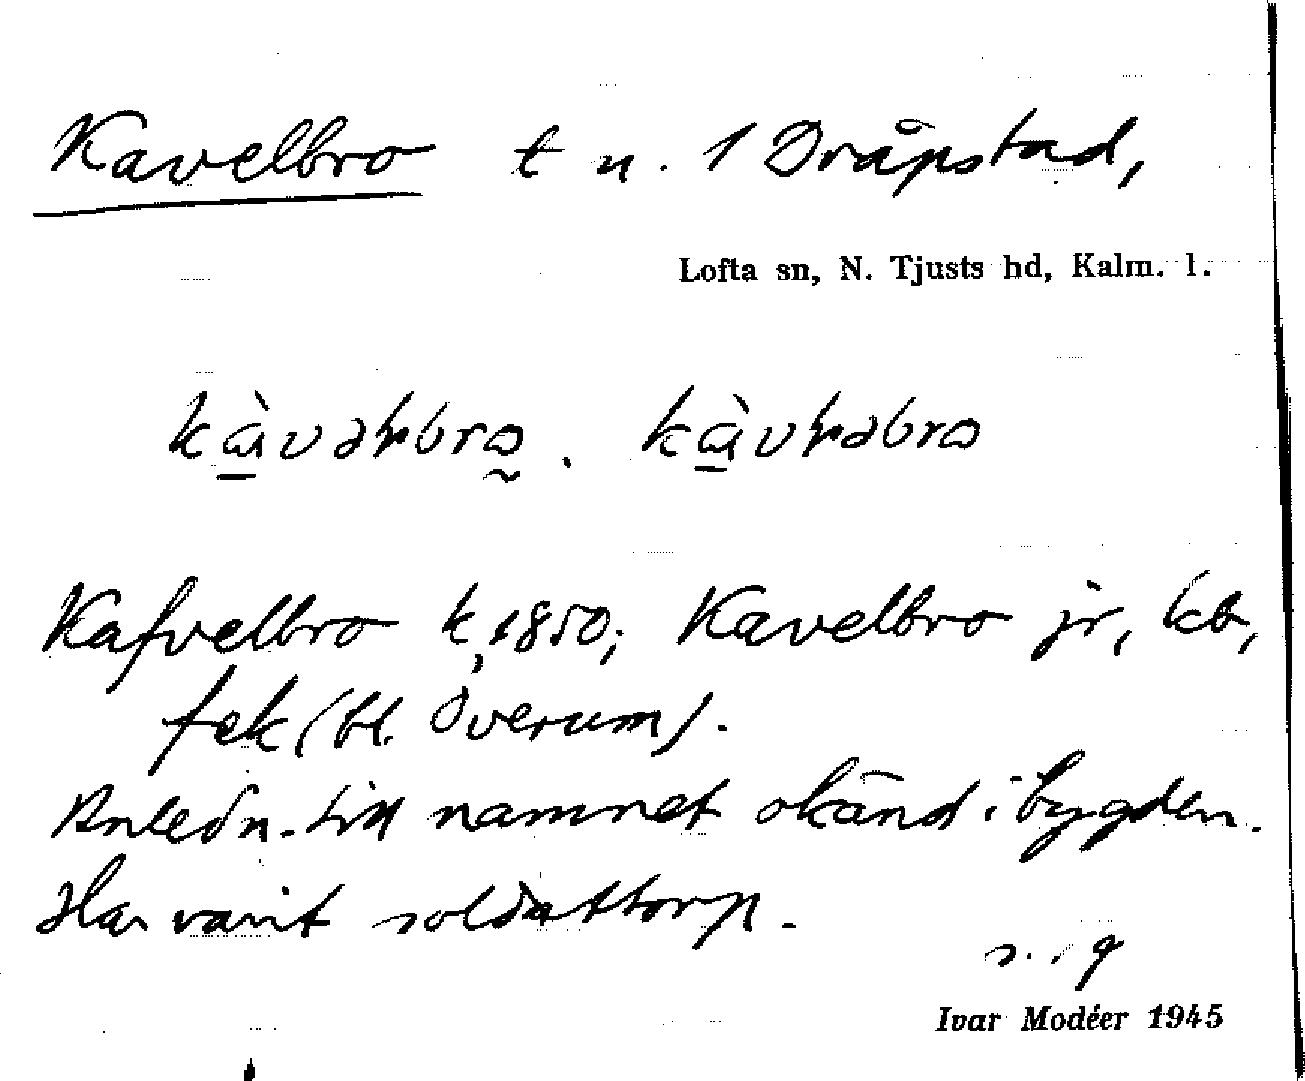 Kavelbro t u. 1 Dråpstad,
Lofta sn, N. Tjusts hd, Kalm. l.
kàvəɫbro. kàvɫəbro
Kafvelbro k, 1850; Kavelbro jr, kb,
fek (bl. Överum).
Anledn. till namnet okänd i bygden.
Har varit soldattorp.
Ivar Modéer 1945